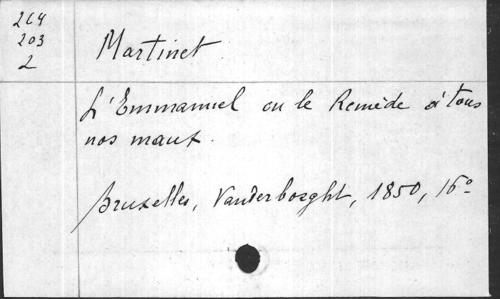 264
203
2
Martinet
L'Emmanuel ou le Remède à tous
nos maux.
Bruxelles, Vanderborght, 1850, 16°